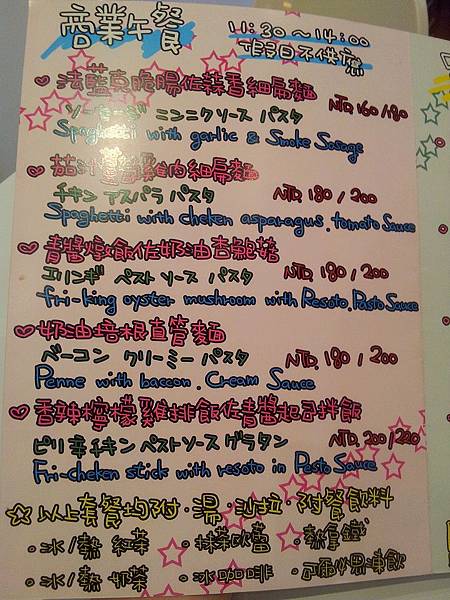 商業午餐
11:30～14:00
假日不供應
法藍克脆腸佐蒜香細扁麵
NTD. 160/180
ソーセージ ニンニクソース パスタ
Spaghetti with garlic & Smoke Sosage
茄汁蘆筍雞肉細扁麵
チキン アスパラ パスタ
NTD. 180/200
Spaghetti with cheken asparagus.tomato Sauce
青醬燉飯佐奶油杏鮑菇
エリンギ ペスト ソース パスタ
NTD. 180/200
fri-king oyster mushroom with Resoto.Pasto Sauce
奶油培根直管麵
ベーコン クリーミー パスタ
NTD. 180/200
Penne with baccon.Cream Sauce
香辣檸檬雞排飯佐青醬起司拌飯
ピリ辛チキンペストソースグラタン
NTD. 200/220
Fri-cheken stick with resoto in Pasto Sauce
☆以上套餐均附·湯·沙拉·附餐飲料
·冰/熱 紅茶 ·抹茶歐蕾 ·熱拿鐵
·冰/熱 奶茶 ·冰咖啡 ·可爾必思凍飲